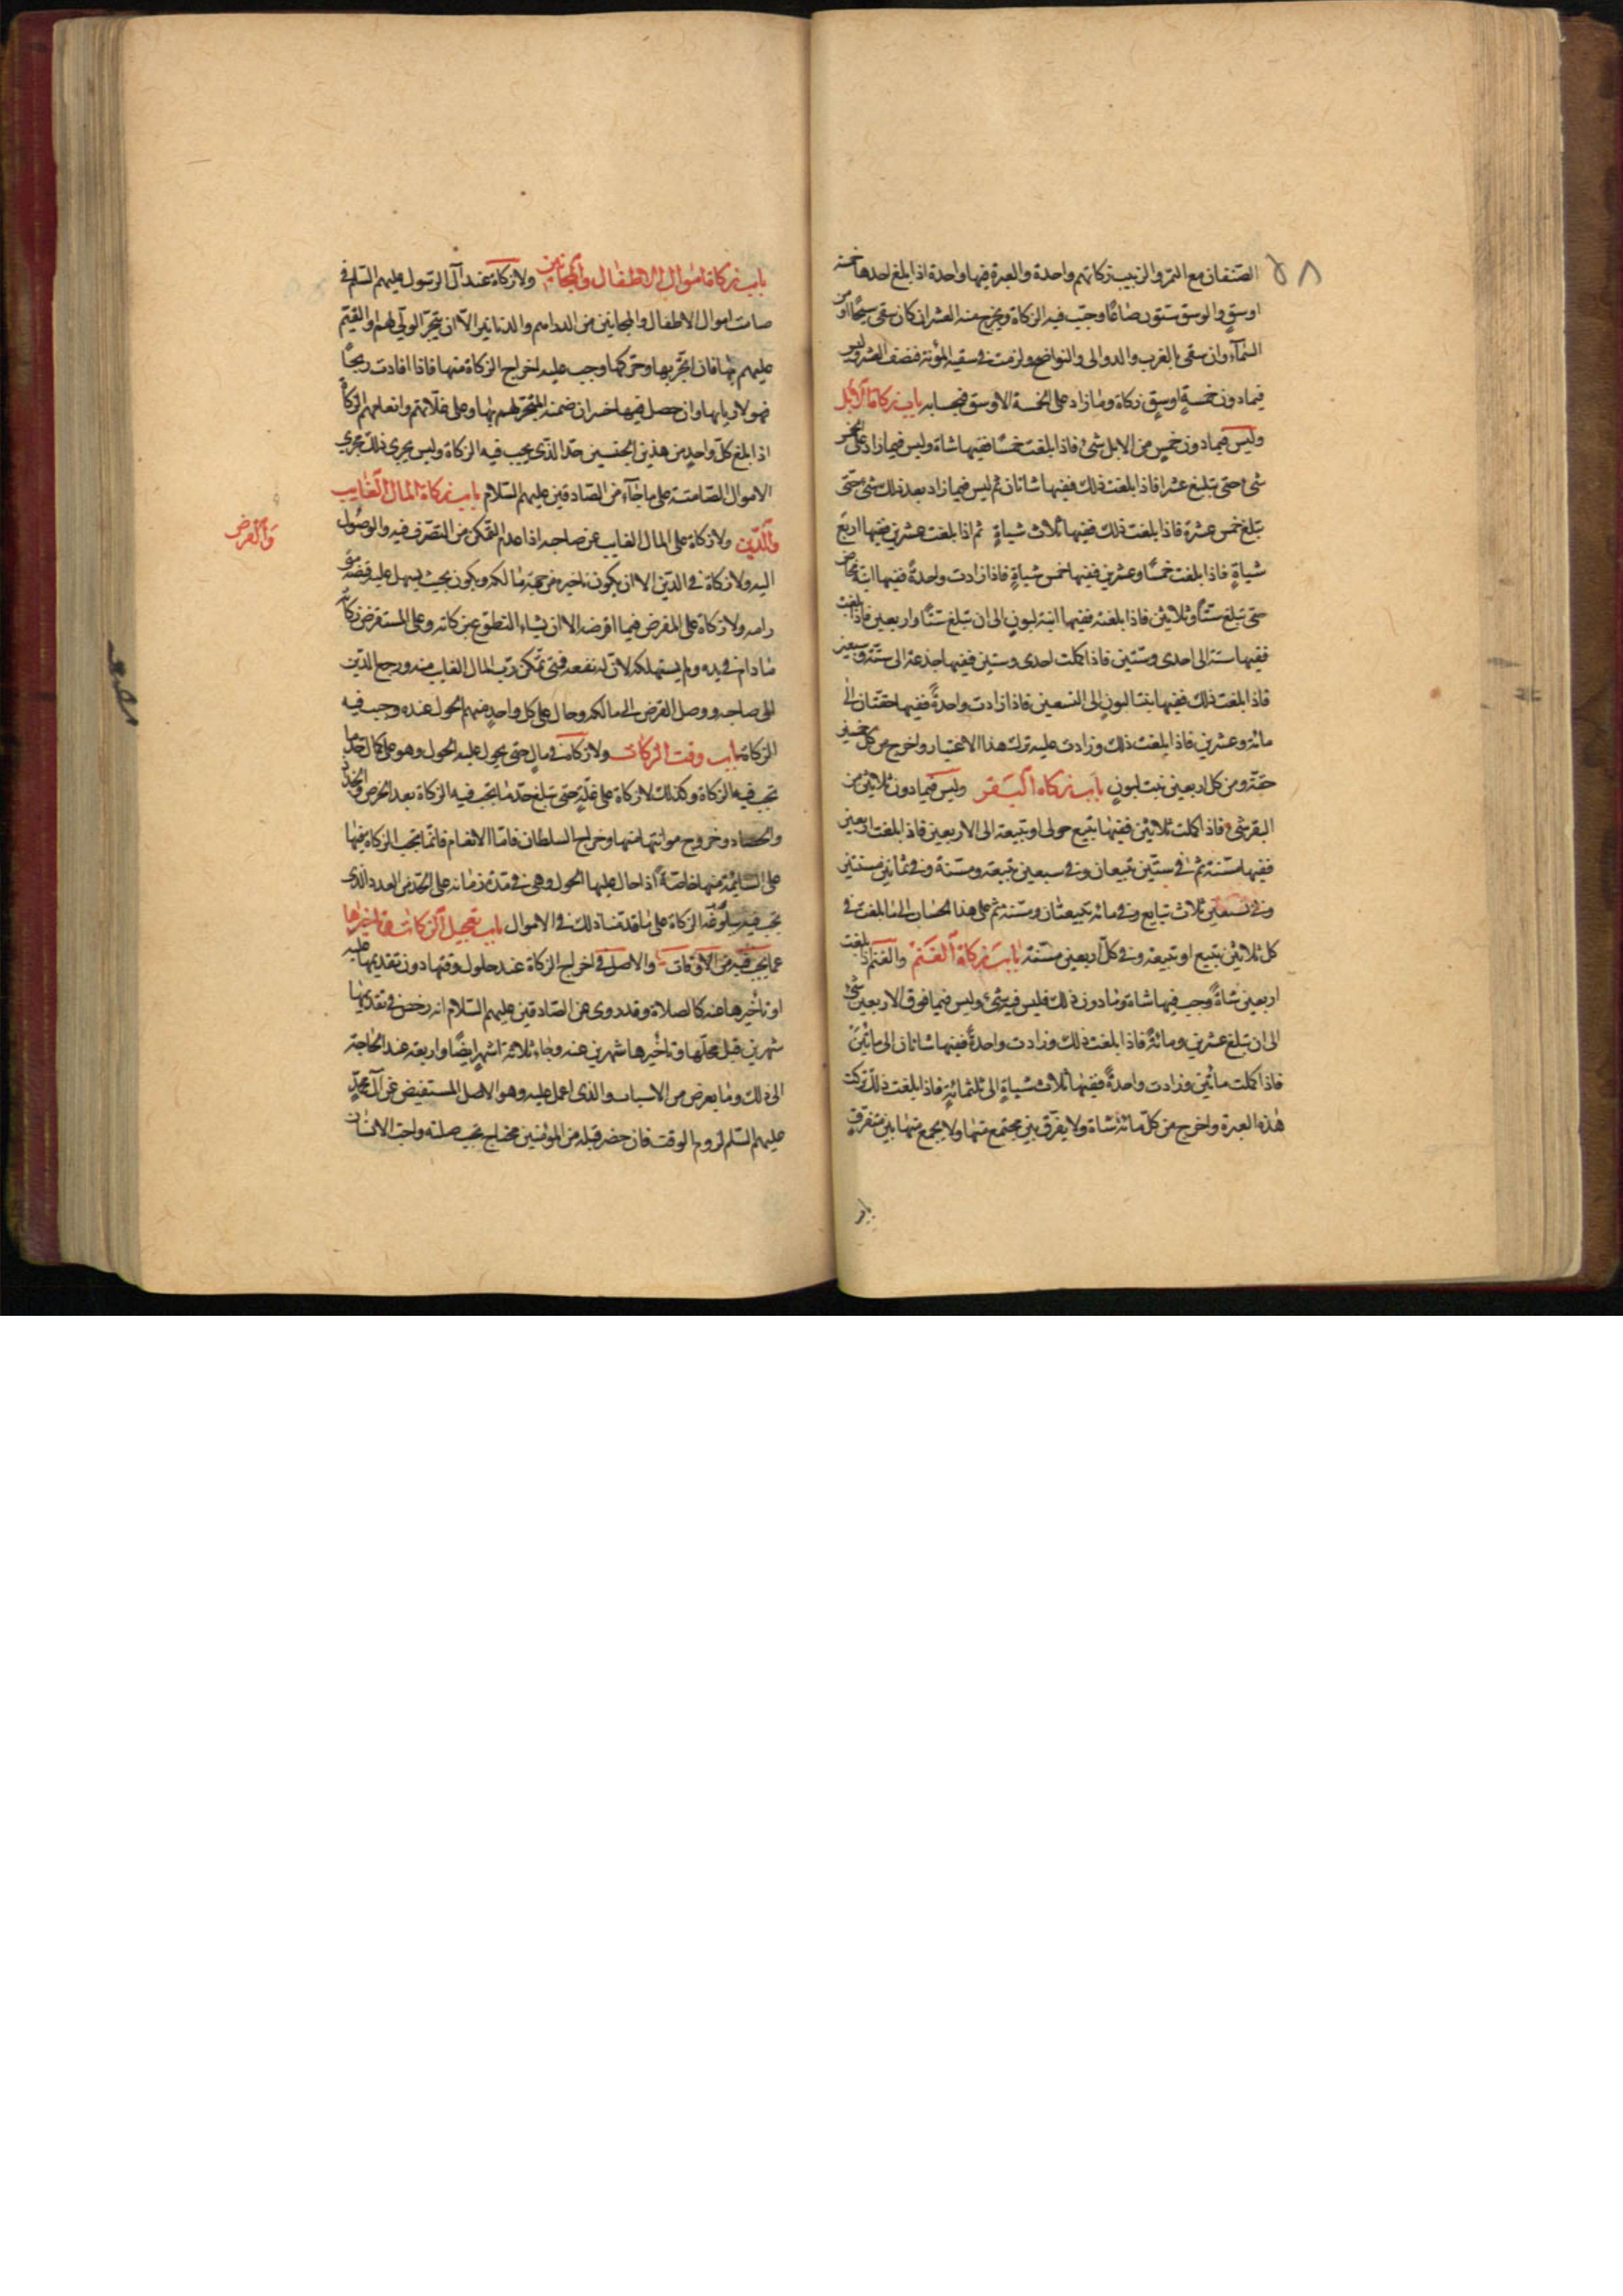 الصنفان مع التمر والزبيب زكاتهم واحدة والعبرة فيها واحدة اذا بلغ احدها خمسة
اوسق والوسق ستون صاعًا وجب فيه الزكاة ويخرج منه العشر ان كان سقى سيحًا او من
السمآء وان سقى بالغرب والدوالى والنواضح ولزمت فى سقيه المؤنة فنصف العشر وليس
فيما دون خمسة اوسق زكاة وما زاد على الخمسة الاوسق فبحسابه باب زكاة الابل
وليس فيما دون خمس من الابل شئ فاذا بلغت خمسًا ففيها شاة وليس فيما زاد على الخمس
شئ حتى تبلغ عشرا فاذا بلغت ذلك ففيها شاتان ثم ليس فيما زاد بعد ذلك شئ حتى
تبلغ خمس عشرة فاذا بلغت ذلك ففيها ثلاث شياة ثم اذا بلغت عشرين ففيها اربع
شياة فاذا بلغت خمسًا وعشرين ففيها خمس شياة فاذا زادت واحدة ففيها ابنة مخاض
حتى تبلغ ستًا وثلاثين فاذا بلغته ففيها ابنة لبون الى ان تبلغ ستًا واربعين فاذا بلغت
ففيها ستة الى احدى وستين فاذا كملت احدى وستين ففيها جذعة الى ستة وسبعين
فاذا بلغت ذلك ففيها بنتا لبون الى التسعين فاذا زادت واحدةً ففيها حقتان الى
مائة وعشرين فاذا بلغت ذلك وزادت عليه ترك هذا الاعتبار واخرج من كل خمسين
حقة ومن كل اربعين بنت لبون باب زكاة البقر وليس فيما دون ثلاثين من
البقر شئ فاذا كملت ثلاثين ففيها تبيع حولى او تبيعة الى الاربعين فاذا بلغت اربعين
ففيها مسنة ثم فى ستين تبيعان وفى سبعين تبيعة ومسنة وفى ثمانين مسنتين
وفى تسعين ثلاث تبايع وفى مائة تبيعتان ومسنة ثم على هذا الحساب الى ما بلغت فى
كل ثلاثين تبيع او تبيعة وفى كل اربعين مسنة باب زكاة الغنم والغنم اذا بلغت
اربعين شاةً وجب فيها شاة وما دون ذلك فليس فيه شئ وليس فيما فوق الاربعين شئ
الى ان تبلغ عشرين ومائة فاذا بلغت ذلك وزادت واحدةً ففيها شاتان الى مائتين
فاذا كملت مائتين وزادت واحدةً ففيها ثلاث شياة الى ثلثمائة فاذا بلغت ذلك تركت
هذه العبرة واخرج من كل مائة شاة ولا يفرق بين مجتمع منها ولا يجمع منها بين متفرق
باب
باب زكاة اموال الاطفال والمجانين ولا زكاة عند آل الرسول عليهم السلم فى
صامت اموال الاطفال والمجانين من الدراهم والدنانير الا ان يتجر الولى لهم او القيم
عليهم بها فان اتجر بها وحركها وجب عليه اخراج الزكاة منها فاذا افادت ربحًا
فهو لاربابها وان حصل فيها خسران ضمنه المتجر لهم بها وعلى غلاتهم وانعامهم الزكاة
اذا بلغ كل واحد من هذين الجنسين حد الذى يجب فيه الزكاة وليس يجرى ذلك مجرى
الاموال الصامتة على ما جآء عن الصادقين عليهم السلام باب زكاة المال الغايب
والدين ولا زكاة على المال الغايب عن صاحبه اذا عدم التمكن من التصرف فيه والوصول
والقرض
اليه ولا زكاة فى الدين الا ان يكون تاخيره من جهة مالكه ويكون بحيث يسهل عليه قبضه متى
رامه ولا زكاة على المقرض فيما اقرضه الا ان يشاء التطوع بزكاته وعلى المستقرض زكاته
ما دام فى يده ولم يستهلكه لان له نفعه فمتى تمكن رب المال الغايب منه ورجع الدين
الى صاحبه ووصل القرض الى مالكه وحال على كل واحد منهم الحول عنده وجب فيه
الزكاة باب وقت الزكاة ولا زكاة فى مال حتى يحول عليه الحول وهو على كمال حد ما
تجب فيه الزكاة وكذلك لا زكاة على غلة حتى تبلغ حد ما تجب فيه الزكاة بعد الخرص والجذاذ
والحصاد وخروج مونتها منها وخراج السلطان فاما الانعام فانما تجب الزكاة فيها
على السايمة منها خاصةً اذا حال عليها الحول وهى فى مدة زمانه على الحد من العدد الذى
تجب فيه ببلوغه الزكاة على ما قدمنا ذلك فى الاموال باب تعجيل الزكاة وتاخيرها
عما يجب فيه من الاوقات والاصل فى اخراج الزكاة عند حلول وقتها دون تقديمها عليه
او تاخيرها عنه كالصلاة وقد روى عن الصادقين عليهم السلام انه رخص فى تقديمها
شهرين قبل محلها وتاخيرها شهرين عنه وجاء ثلاثة اشهر ايضًا واربعة عند الحاجة
الى ذلك وما يعرض من الاسباب والذى اعمل عليه وهو الاصل المستفيض عن آل محمد
عليهم السلم لزوم الوقت فان حضر قبله من المؤمنين محتاج تجب صلته واحب الانسان